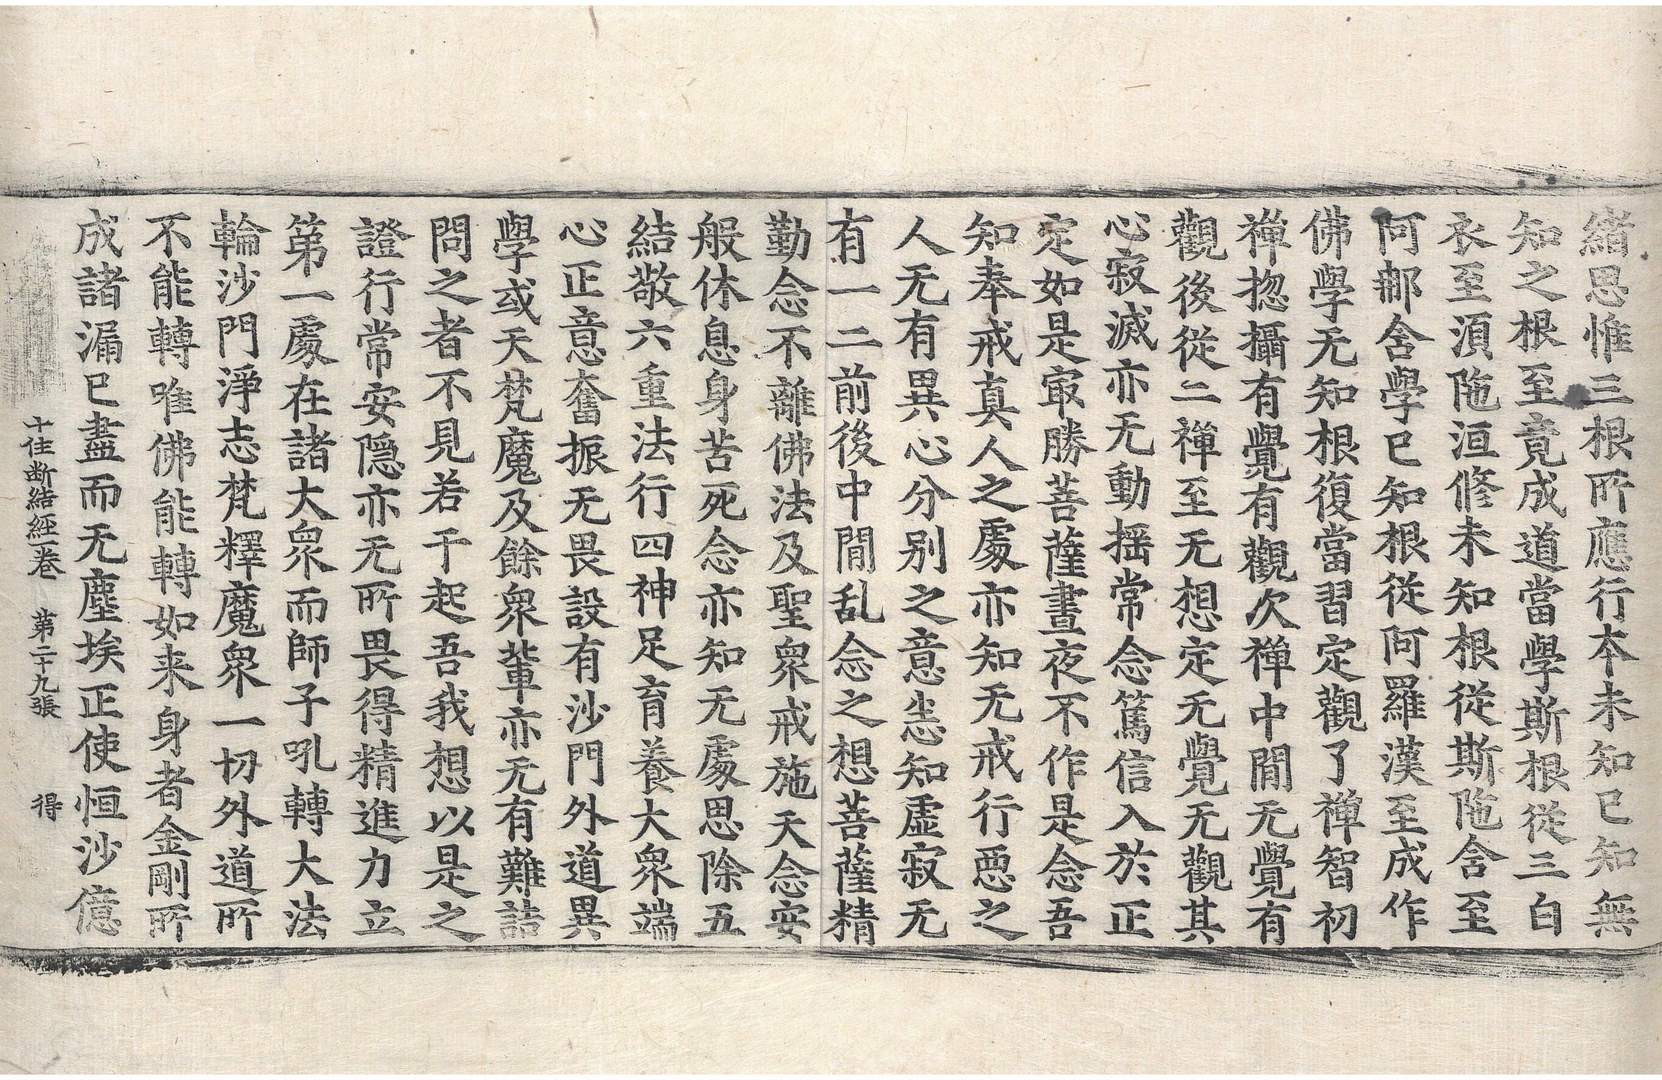 緒思惟三根所應行本未知已知無
知之根至竟成道當學斯根從三白
衣至湏陁洹修未知根從斯陁含至
阿那含學已知根從阿羅漢至成作
佛學无知根復當習定觀了禪智初
禪揔攝有覺有觀次禪中間无覺有
觀後從二禪至无想定无覺无觀其
心寂滅亦无動揺常念篤信入於正
定如是㝡勝菩薩晝夜不作是念吾
知奉戒真人之處亦知无戒行惡之
人无有異心分别之意悉知虚寂无
有一二前後中間乱念之想菩薩精
勤念不離佛法及聖衆戒施天念安
般休息身苦死念亦知无處思除五
結敬六重法行四神足育養大衆端
心正意奮振无畏設有沙門外道異
學或天梵魔及餘衆輩亦无有難詰
問之者不見若干起吾我想以是之
證行常安隠亦无所畏得精進力立
第一處在諸大衆而師子吼轉大法
輪沙門淨志梵釋魔衆一切外道所
不能轉唯佛能轉如来身者金剛所
成諸漏已盡而无塵埃正使恒沙億
十住断結經一卷 第二十九張 得